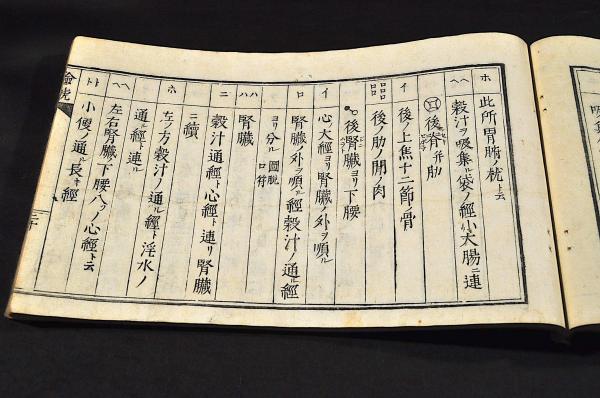 ホ 此所胃腑ノ枕ト云
ヘヘ 穀汁ヲ吸集ル袋ノ經小大腸ニ連
後脊并肋
イ 後ノ上焦十二節ノ骨
呂呂 後ノ肋ノ間ノ肉
後腎臟ヨリ下腰
イ 心ノ大經ヨリ腎臟ノ外ヲ順ル
ロ 腎臟ノ外ヲ順ル經穀汁ノ通ル經
ヨリ分ル 圖脱ロ符
ハハ 腎臟
ニ 穀汁通經ト心經ト連リ腎臟
ニ續
ホ 左ノ方穀汁ノ通ル經ト淫水ノ
通ル經ト連ル
ヘヘ 左右腎臟下腰八ツノ心經ト云
トト 小便ノ通ル長キ經